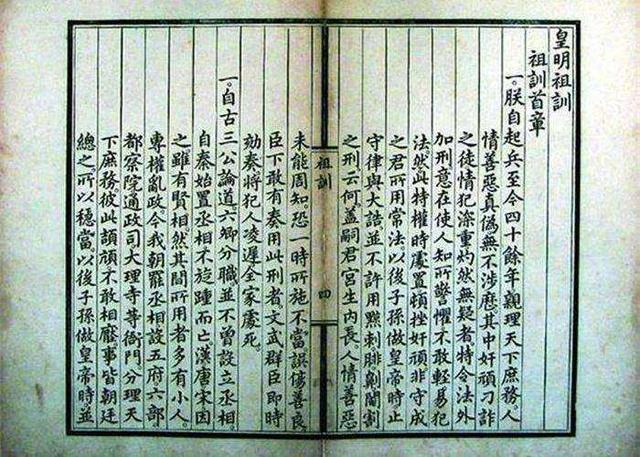 皇明祖訓
祖訓首章
一。朕自起兵至今四十餘年。親理天下庶務。人
情善惡真偽。無不涉歷。其中奸頑刁詐
之徒。情犯深重。灼然無疑者。特令法外
加刑。意在使人知所警懼。不敢輕易犯
法。然此特權時處置。頓挫奸頑。非守成
之君所用常法。以後子孫做皇帝時。止
守律與大誥。並不許用黥刺腓劓閹割
之刑。云何。蓋嗣君宮生內長。人情善惡
祖訓
四
未能周知。恐一時所施不當。誤傷善良。
臣下敢有奏用此刑者。文武群臣即時
劾奏。將犯人凌遲。全家處死。
一。自古三公論道。六卿分職。並不曾設立丞相。
自秦始置丞相。不旋踵而亡。漢唐宋因
之。雖有賢相。然其間所用者多有小人。
專權亂政。今我朝罷丞相。設五府六部
都察院通政司大理寺等衙門。分理天
下庶務。彼此頡頏。不敢相壓。事皆朝廷
總之。所以穩當。以後子孫做皇帝時。並